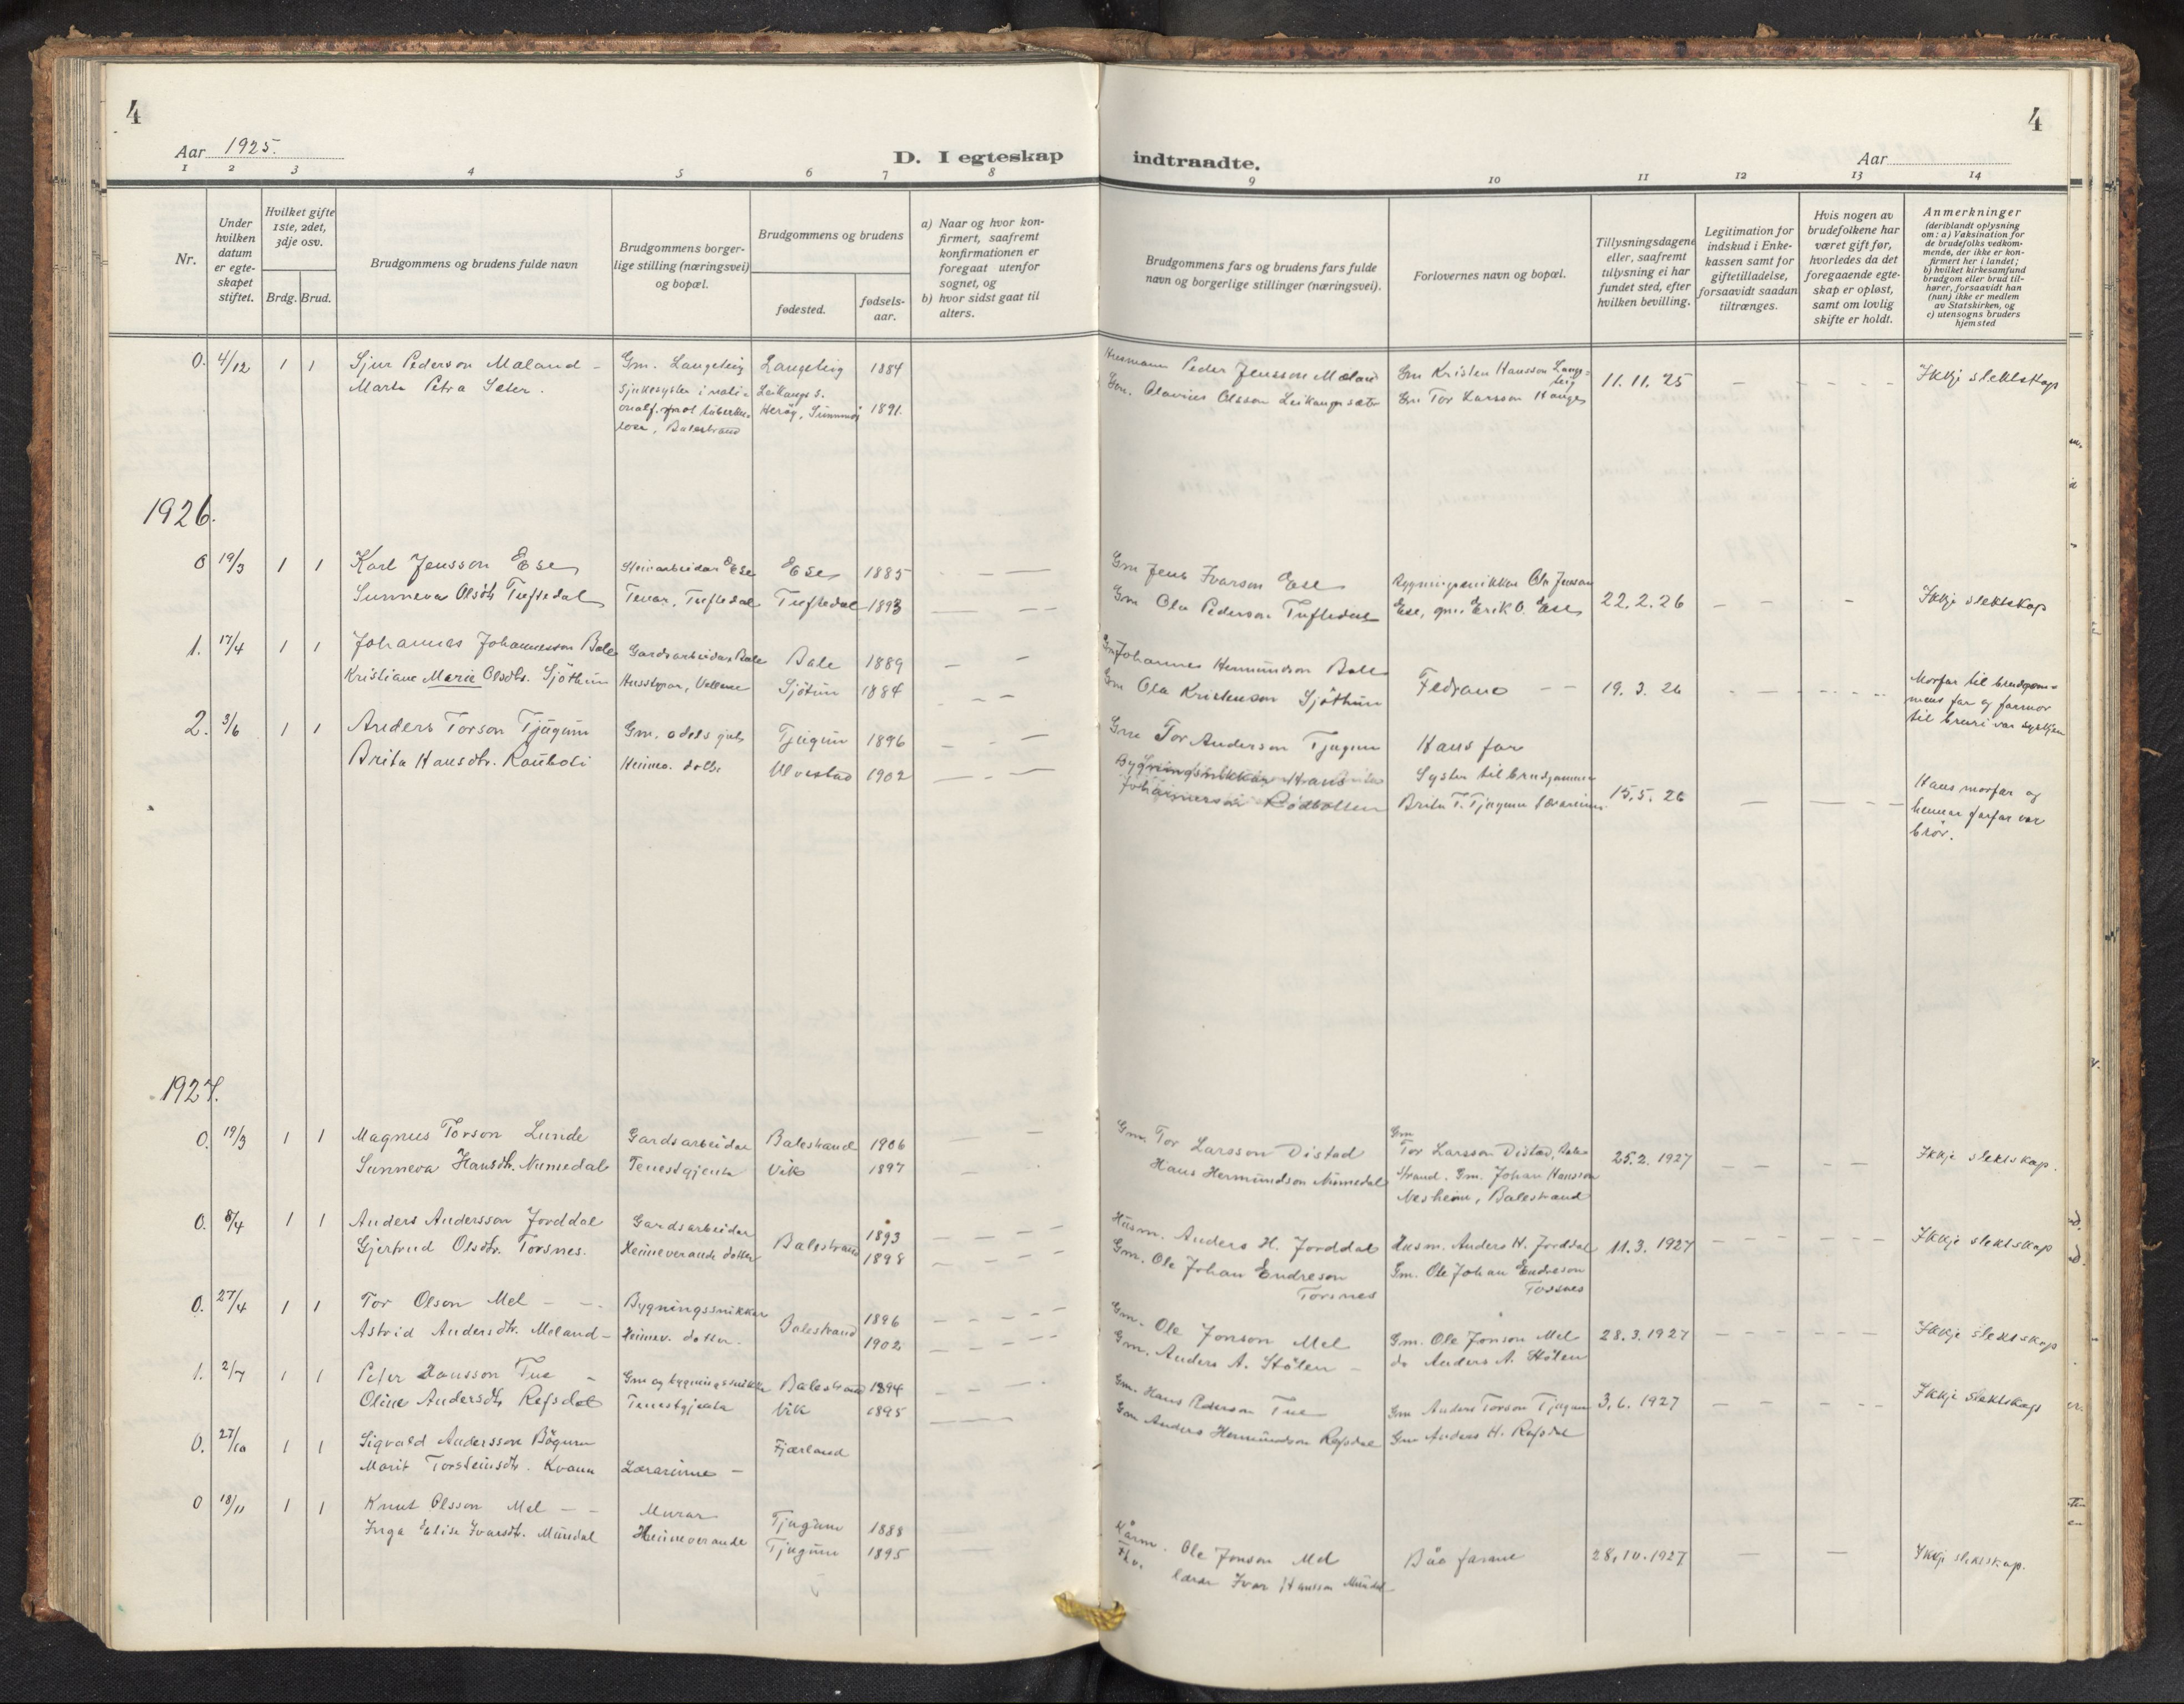 4
Aar 1925.
D. I egteskap
1 2 3 4 5 6 7 8
Nr.
Under hvilken datum er egte-skapet stiftet.
Hvilket gifte 1ste, 2det, 3dje osv.
Brdg. Brud.
Brudgommens og brudens fulde navn
Brudgommens borger-lige stilling (næringsvei) og bopæl.
Brudgommens og brudens
fødested.
fødsels-aar.
a) Naar og hvor kon-firmert, saafremt konfirmationen er foregaat utenfor sognet, og
b) hvor sidst gaat til alters.
0. 4/12 1 1 Sjur Pederson Maland - Gm. Langeteig Langeteig 1884
Marta Petra Sæter. Sjukesyster i nati-
onalf. mot tuberku-
lose, Balestrand
Leikangs s.
Herøy, Sunnmør 1891.
1926.
0 19/3 1 1 Karl Jensson Ese Heimarbeidar Ese Ese 1885 - - —
Sunneva Olsdtr Tuftedal Tenar, Tuftedal Tuftedal 1893 — — —
1. 17/4 1 1 Johannes Johannesson Bale Gardsarbeidar Bale Bale 1889 — —
Kristiane Marie Olsdtr. Sjøthun Husstyrar, Vallene Sjøtun 1884 — —
2. 3/6 1 1 Anders Torson Tjugum Gm. odels gut Tjugum 1896
Brita Hansdtr. Rauboti Heimev. dotter Ulvestad 1902 — - —
1927.
0. 19/3 1 1 Magnus Torson Lunde Gardsarbeidar Balestrand 1906 — —
Sunneva Hansdtr. Numedal Tenestgjenta Vik 1897 —
0. 8/4 1 1 Anders Andersson Jorddal Gardsarbeidar 1893 — — —
Gjertrud Olsdtr. Torsnes. Heimeverande dotter Balestrand 1898 — — —
0. 27/4 1 1 Tor Olson Mel — -. Bygningssnikkar 1896 — — —
Astrid Andersdtr. Meland - Heimev. dotter. Balestrand 1902 — — —
1. 2/7 1 1 Peter Hansson Tue - Gm og bygningssnikkar Balestrand 1894 — - —
Oline Andersdtr Refsdal Tenestgjenta Vik 1895 ———
0. 27/10 1 1 Sigvald Andersson Bøyum Fjærland
Marit Torsteinsdtr. Kvann Lærarinne —
0 18/11 1 1 Knut Olsson Mel — - Murar Tjugum 1888
Inga Elise Ivarsdtr. Mundal Heimeverande Tjugum 1895 —
4
indtraadte.
Aar
9 10 11 12 13 14
Brudgommens fars og brudens fars fulde navn og borgerlige stillinger (næringsvei).
Forlovernes navn og bopæl.
Tillysningsdagene eller, saafremt tillysning ei har fundet sted, efter hvilken bevilling.
Legitimation for indskud i Enke-kassen samt for giftetilladelse, forsaavidt saadan tiltrænges.
Hvis nogen av brudefolkene har været gift før, hvorledes da det foregaaende egte-skap er opløst, samt om lovlig skifte er holdt.
Anmerkninger
(deriblandt oplysning om: a) Vaksination for de brudefolks vedkom-mende, der ikke er kon-firmert her i landet;
b) hvilket kirkesamfund brudgom eller brud til-hører, forsaavidt han (hun) ikke er medlem av Statskirken, og
c) utensogns bruders hjemsted
Husmann Peder Jensson Mæland Gm Kristen Hansson Lang-
teig 11.11.25 — - - - - Ikkje slektskap
Gm. Olavius Olsson Leikangsæter Gm Tor Larsson Hauge
Gm Jens Ivarson Ese Bygningssnikkar Ola Jensson
Gm Ola Pederson Tuftedal Ese, gm. Erik O. Ese 22.2.26 — — — Ikkje slektskap
Gm Johannes Hermundson Bale
Gm Ola Kristenson Sjøthun Fedrane — — 19.3.26 Morfar til brudgom-
mens far og farmor
til bruri var syskjen
Gm Tor Anderson Tjugum Hans far
Bygningssnikkar Hans
Johannerson Rødbotten Syster til brudgommen
Brita T. Tjugum lærarinne 15.5.26 — — — — Hans morfar og
hennar farfar var
brør.
Gm. Tor Larsson Distad Gm
Tor Larsson Distad, Bale-
Hans Hermundson Numedal strand. Gm. Johan Hansson
Nesheim, Balestrand 25.2.1927 — — — — Ikkje slektskap.
Husm. Anders H. Jorddal Husm. Anders H. Jorddal 11.3.1927 Ikkje slektskap
Gm. Ole Johan Endreson
Torsnes Gm. Ole Johan Endreson
Torsnes
Gm. Ole Jonson Mel Gm. Ole Jonson Mel 28.3.1927 Ikkje slektskap
Gm. Anders A. Stølen — do Anders A. Stølen
Gm. Hans Pederson Tue Gm Anders Torson Tjugum 3.6.1927 — — — — Ikkje slektskap
Gm Anders Hermundson Refsdal Gm Anders H. Refsdal
Kårm. Ole Jonson Mel Båe farane 28.10.1927 — — Ikkje slektskap.
Fhv. lærar Ivar Hansson Mundal